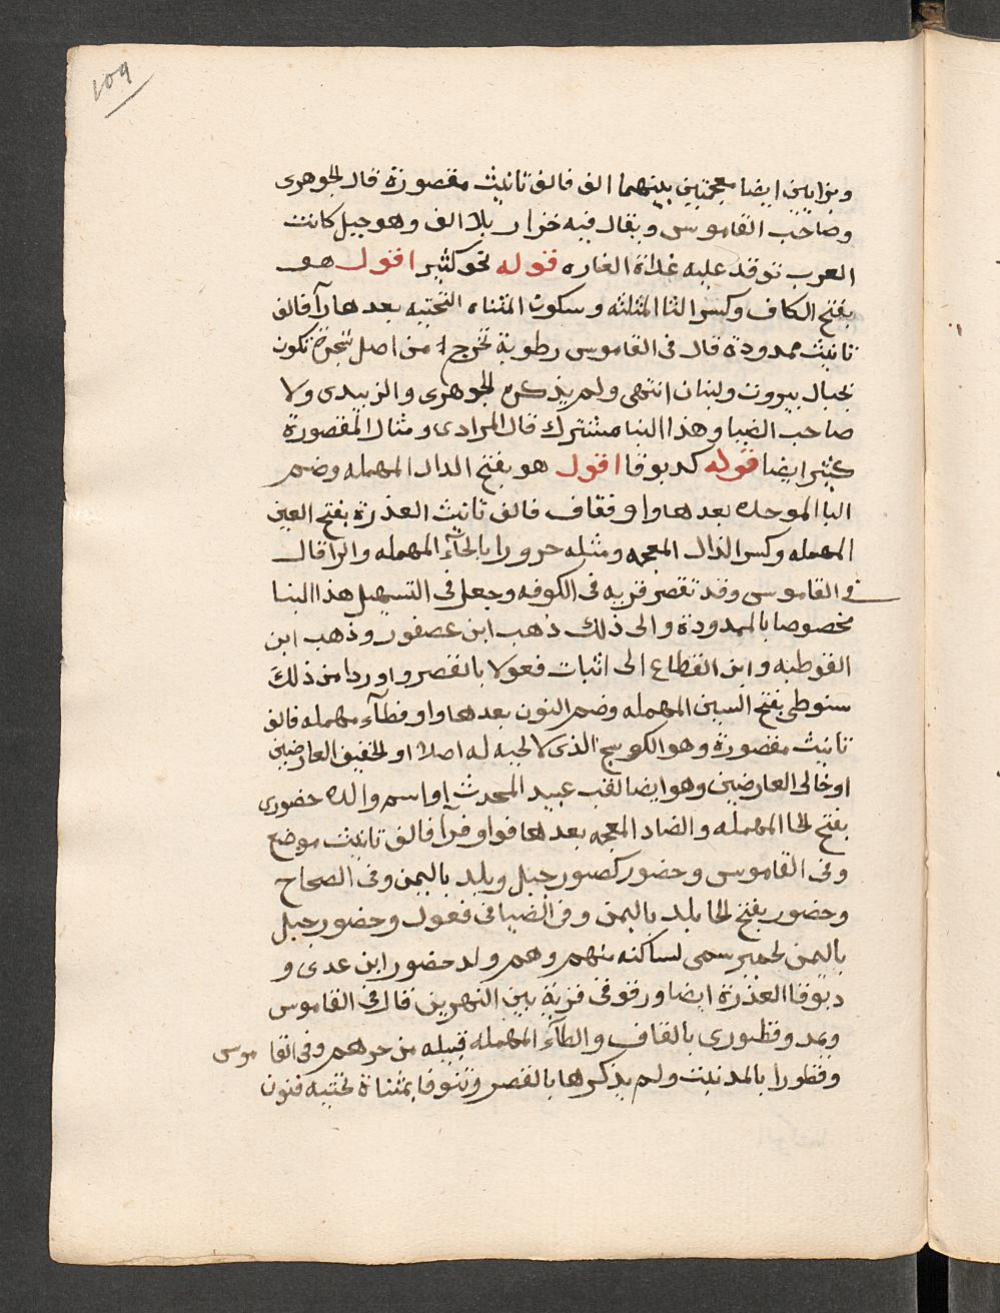 109
وبزايين ايضا معجمتين بينهما الف فالف تانيث مقصورة قال الجوهرى
وصاحب القاموس ويقال فيه خزار بلا الف وهو جبل كانت
العرب توقد عليه غداة الغاره قوله نحو كثيرا اقول هو
بفتح الكاف وكسر الثا المثلثه وسكون المثناه التحتيه بعدها رآ فالف
تانيث ممدودة قال فى القاموس رطوبة تخرج من اصل شجرة تكون
بجبال بيروت ولبنان انتهى ولم يذكره الجوهرى والزبيدى ولا
صاحب الضيا وهذا البنا مشترك قال المرادى ومثال المقصورة
كثيرى ايضا قوله كدبوقا اقول هو بفتح الدال المهمله وضم
البا الموحده بعدها واو فقاف فالف تانيث العذرة بفتح العين
المهمله وكسر الذال المعجمه ومثله حرورا بالحآء المهمله والرا قال
فى القاموس وقد تقصر قريه فى الكوفه وجعل فى التسهيل هذا البنا
مخصوصا بالممدودة والى ذلك ذهب ابن عصفور وذهب ابن
القوطيه وابن القطاع الى اثبات فعولا بالقصر واوردا من ذلك
سنوطى بفتح السين المهمله وضم النون بعدها واو فطآء مهمله فالف
تانيث مقصورة وهو الكوسج الذى لا لحيه له اصلا او الخفيف العارضين
او خالى العارضين وهو ايضا لقب عبيد المحدث او اسم والده حضورى
بفتح الحا المهمله والضاد المعجمه بعدها فواو فرآ فالف تانيث موضع
وفى القاموس وحضور كصبور جبل وبلد باليمن وفى الصحاح
وحضور بفتح الحا بلد باليمن وفى الضيا فى فعول وحضور جبل
باليمن لحمير سمى لساكنه منهم وهم ولد حضور ابن عدى و
دبوقا العذرة ايضا ورقوفى قرية بين النهرين قال فى القاموس
ويمد وقطورى بالقاف والطآء المهمله قبيله من جرهم وفى القاموس
وقطورا بالمد نبت ولم يذكرها بالقصر وتنوفا بمثناة تحتيه فنون